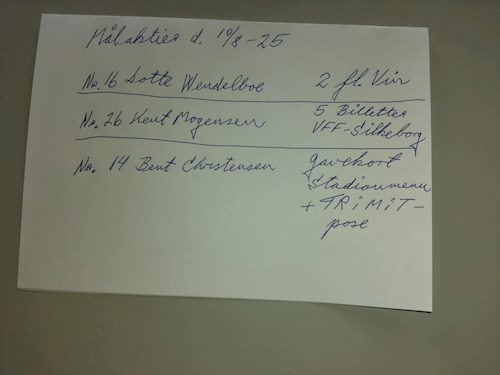 Målaktier d. 10/8-25
Nr. 16 Lotte Wendelboe 2 fl. Vin
Nr. 26 Kent Mogensen 5 Billetter
VFF-Silkeborg
Nr. 14 Bent Christensen gavekort
Stadionmenu
+ TRiMiT-
pose